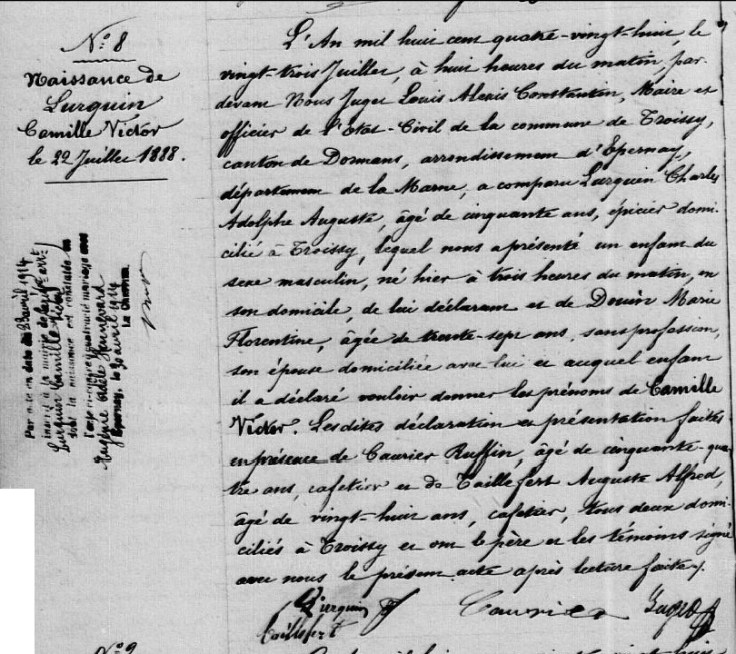 N.º 8
Naissance de
Lurquin
Camille Victor
le 22 Juillet 1888.
Par acte en date du 23 avril 1914
inscrit à la mairie de
Lurquin Camille Victor
dont la naissance est constatée en
l'acte ci-contre a contracté mariage avec
Eugénie Adèle
Epernay, le 30 avril 1914
L'An mil huit cent quatre-vingt-huit, le
vingt-trois Juillet, à huit heures du matin par
devant Nous Juget Louis Alexis Constantin, Maire et
officier de l'Etat-Civil de la commune de Troissy,
canton de Dormans, arrondissement d'Epernay,
département de la Marne, a comparu Lurquin Charles
Adolphe Auguste, âgé de cinquante ans, épicier domi-
cilié à Troissy, lequel nous a présenté un enfant du
sexe masculin, né hier à trois heures du matin, en
son domicile, de lui déclarant et de Douin Marie
Florentine, âgée de trente-sept ans, sans profession,
son épouse domiciliée avec lui et auquel enfant
il a déclaré vouloir donner les prénoms de Camille
Victor. Lesdites déclaration et présentation faites
en présence de Caurier Ruffin, âgé de cinquante-qua-
tre ans, cafetier et de Taillefert Auguste Alfred,
âgé de vingt-huit ans, cafetier, tous deux domi-
ciliés à Troissy et ont le père et les témoins signé
avec nous le présent acte après lecture faite.
Lurquin Caurier Juget
Taillefert
N.º 9